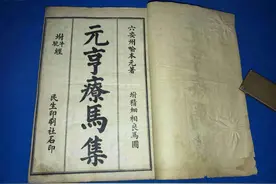 六安州喻本元著
元亨療馬集
附牛駝經
附積細相良馬圖
民生印刷社石印